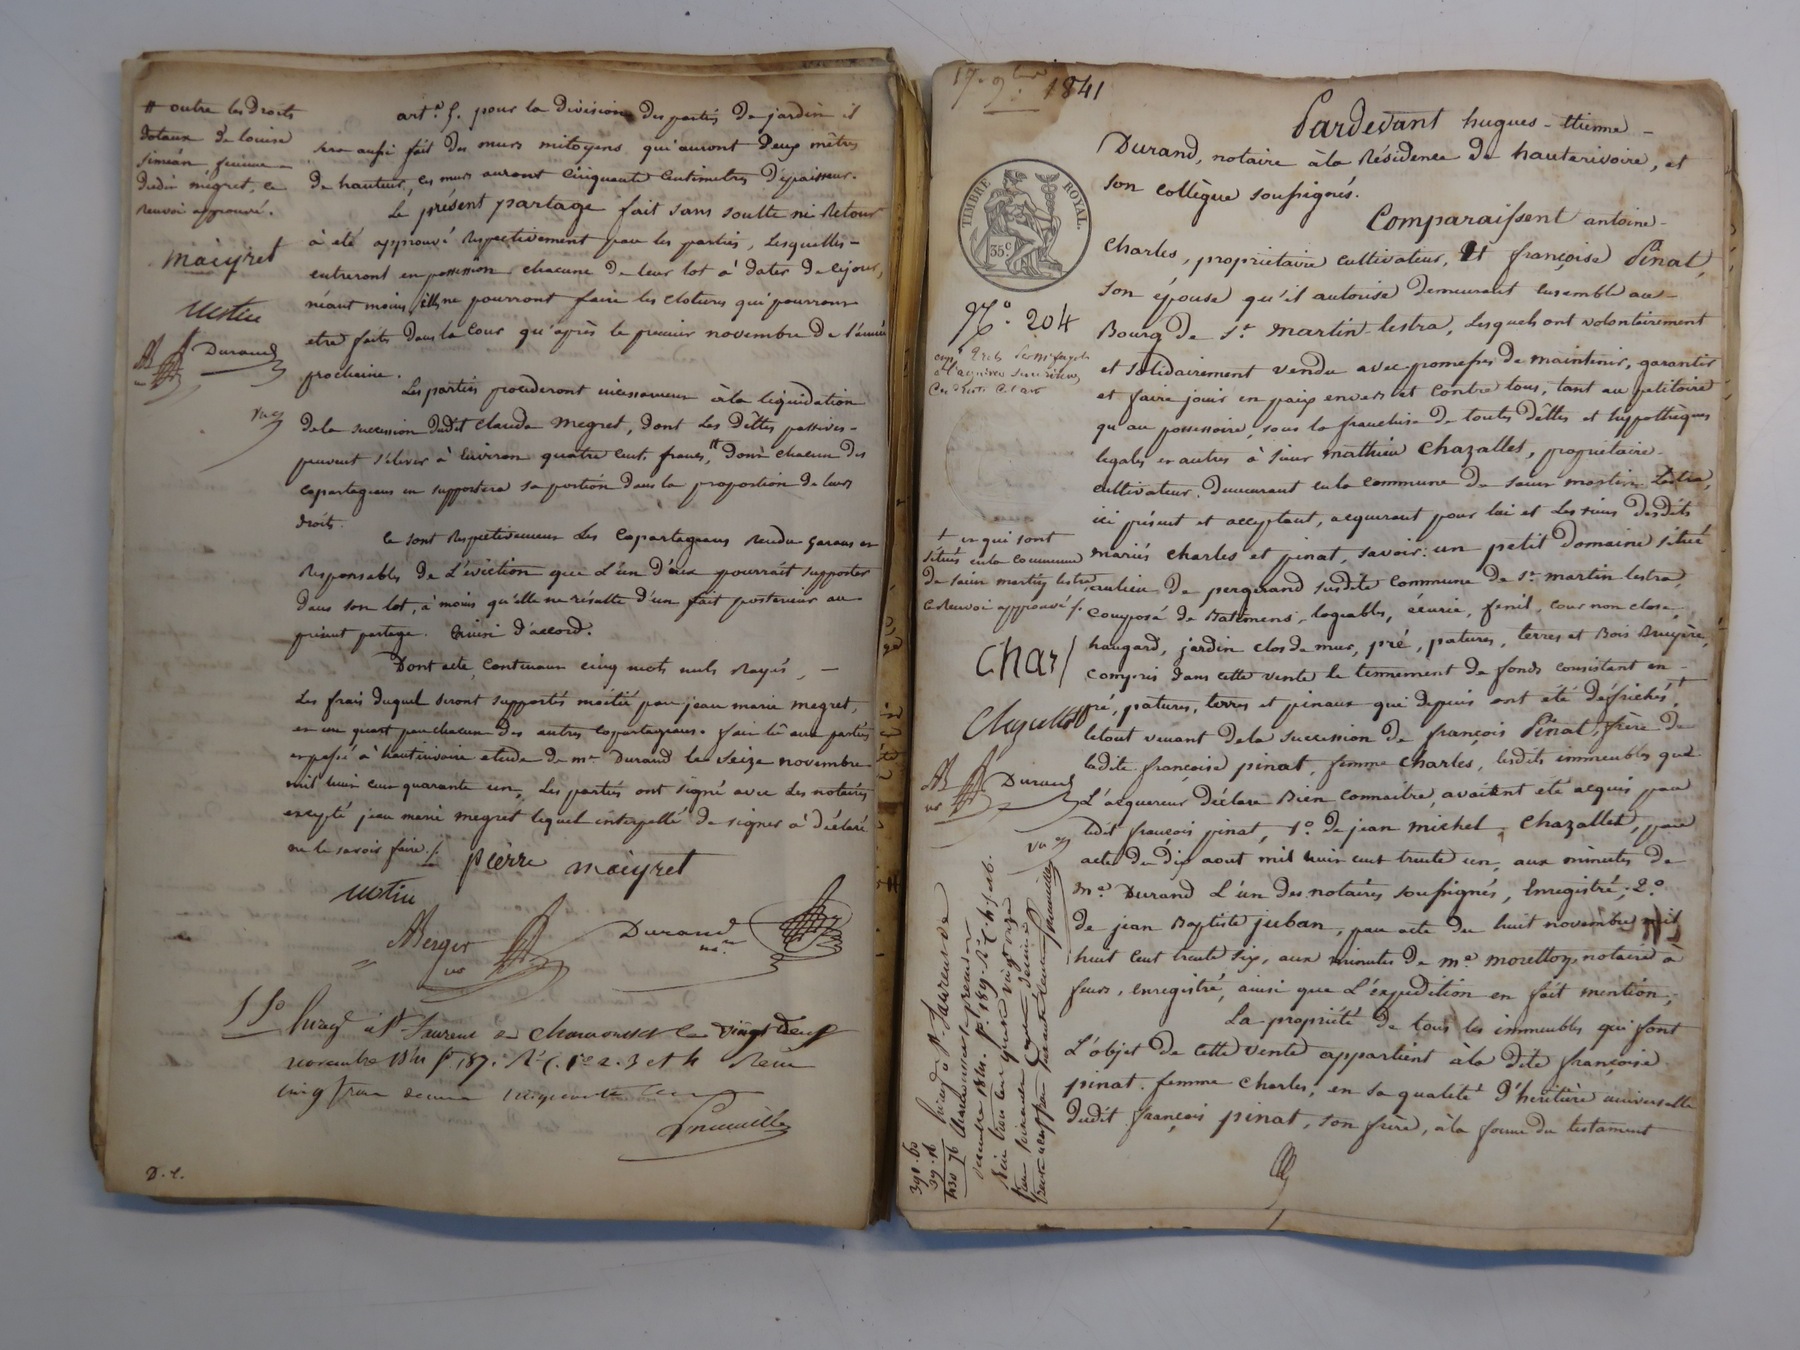 # outre les droits
dotaux de louise
simean femme
dudit mégret, ce
renvoi approuvé.
maiyret
Durand
art.e 5. pour la division des parties de jardin il
sera aussi fait des murs mitoyens qui auront deux mètres
de hauteur, ces murs auront cinquante centimetres d'épaisseur.
Le présent partage fait sans soulte ni retour
à été approuvé respectivement par les parties, lesquelles
entreront en possession chacune de leur lot à dater de ce jour,
néant moins ills ne pourront faire les clotures qui pourront
etre faites dans la cour qu'après le premier novembre de l'année
prochaine.
Les parties procederont incessamment à la liquidation
de la succession dudit claude megret, dont les dêttes passives
peuvent s'élever à environ quatre cent francs,# dont chacun des
copartageans en supportera sa portion dans la proportion de leurs
droits.
Ce sont respectivement les copartageans rendu garans et
responsables de l'éviction que l'un d'eux pourrait supporter
dans son lot, à moins qu'elle ne résulte d'un fait posterieur au
présent partage. Ainsi d'accord.
Dont acte, contenant cinq mots nuls rayés,
les frais duquel seront supportés moitié par jean marie megret,
et un quart par chacun des autres copartageans. fait lû aux parties
et passé à hauterivoire etude de me Durand le seize novembre
mil huit cent quarante un, Les parties ont signé avec les notaires
excepté jean marie megret lequel interpellé de signer à déclaré
ne le savoir faire ./.
pierre maiyret
Berger
Durand
nre
Enregé à St Laurent de chamousset le vingt deux
novembre 1841 fo 187. Ro C. 1re 2. 3 et 4 Reçu
cinq francs decime cinquante cent
D. C.
17. 9bre 1841
Pardevant hugues-ttienne
Durand, notaire à la Résidence de hauterivoire, et
son collègue soussignés.
TIMBRE ROYAL.
35c
Comparaissent antoine
Charles, propriétaire cultivateur, et françoise Pinat,
son épouse qu'il autorise demeurant ensemble au
No. 204
Bourg de St. martin-lestra, lesquels ont volontairement
et solidairement vendu avec promesses de maintenir, garantir
et faire jouir en paix envers et contre tous, tant au petitoire
qu'au possessoire, sous la franchise de toutes dêttes et hypothèques
légales et autres à sieur mathieu chazallet, propriétaire
cultivateur, demeurant en la commune de saint martin Lestra,
ici présent et acceptant, acquerant pour lui et les siens desdits
+ et qui sont
situés en la commune
de saint martin lestra,
ce renvoi approuvé ./.
mariés charles et pinat, savoir: un petit domaine situé
au lieu de pergerand susdite commune de st martin lestra,
composé de Batimens, logeables, écurie, fenil, cour non close,
hangard, jardin clos de mur, pré, patures, terres et Bois Bruyère,
Char/
compris dans cette vente le tennement de fonds consistant en
pré, patures, terres et pinaux qui depuis ont été défrichés,+
letout venant de la succession de françois Pinat, frère de
ladite françoise pinat, femme charles, lesdits immeubles que
Durand
l'acquereur déclare Bien connaitre, avaient été acquis par
ledit françois pinat, 1o. de jean michel chazallet, par
acte du dix aout mil huit cent trente un, aux minutes de
me Durand l'un des notaires soussignés, Enregistré; 2o.
de jean Baptiste juban, par acte du huit novembre mil
huit cent trente six, aux minutes de me morellon, notaire à
feurs, enregistré, ainsi que l'expedition en fait mention;
La propriété de tous les immeubles qui font
l'objet de cette vente appartient à la dite françoise
pinat femme charles, en sa qualité d'héritière universelle
dudit françois pinat, son frère, à la forme du testament
391.60
39.16
430 76